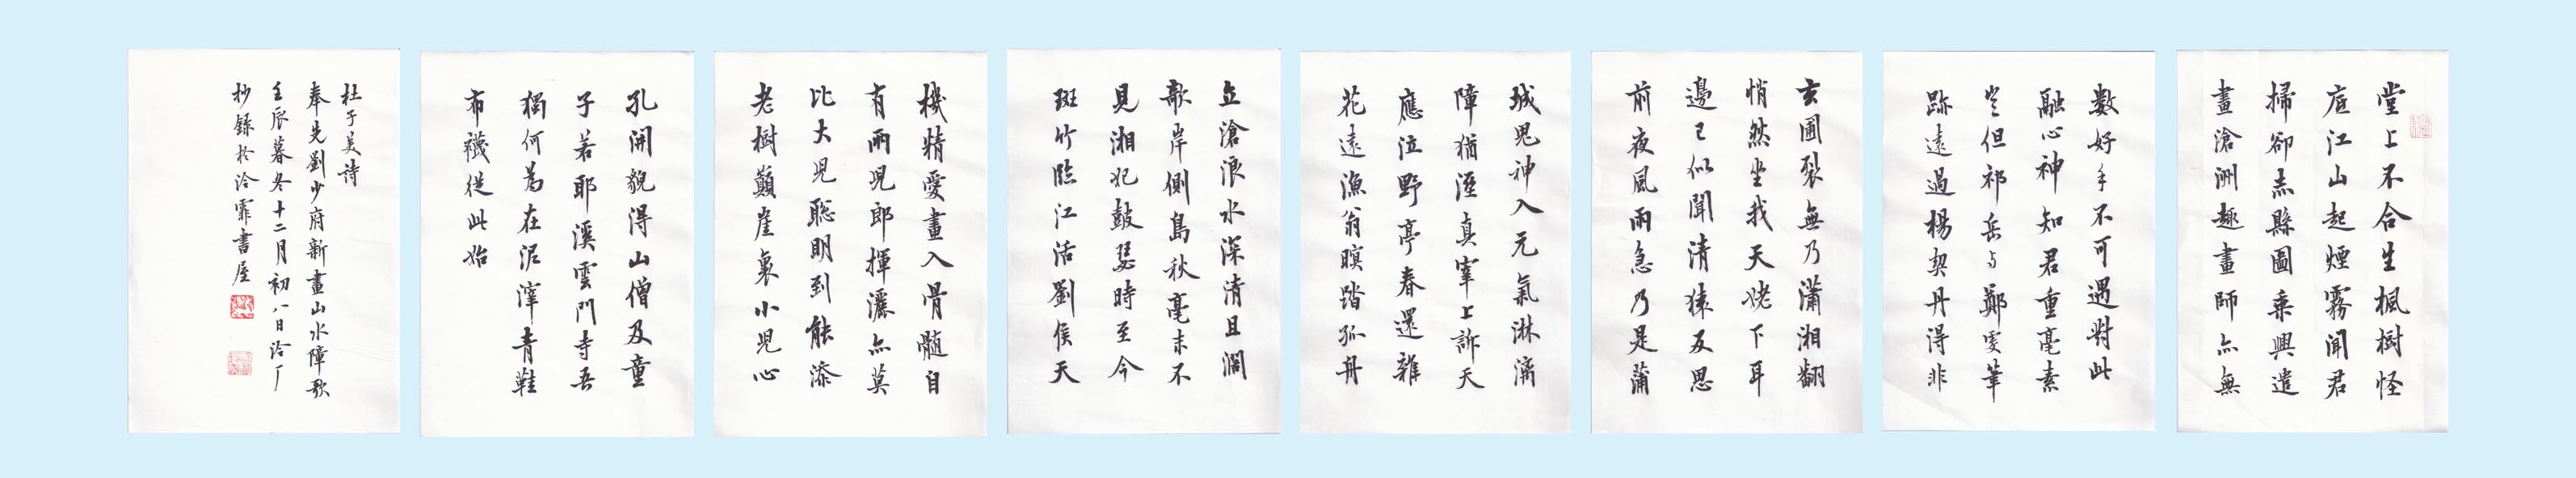 堂上不合生楓樹怪
底江山起煙霧聞君
掃卻赤縣圖乘興遣
畫滄洲趣畫師亦無
數好手不可遇對此
融心神知君重毫素
豈但祁岳与鄭虔筆
跡遠過楊契丹得非
玄圃裂無乃瀟湘翻
悄然坐我天姥下耳
邊已似聞清猿反思
前夜風雨急乃是蒲
城鬼神入元氣淋漓
障猶溼真宰上訴天
應泣野亭春還雜
花遠漁翁暝踏孤舟
立滄浪水深清且濶
欹岸側島秋毫末不
見湘妃鼓瑟時至今
斑竹臨江活劉侯天
機精愛畫入骨髓自
有兩兒郎揮灑亦莫
比大兒聡明到能添
老樹顛崖裏小兒心
孔開貌得山僧及童
子若耶溪雲門寺吾
獨何為在泥滓青鞋
布襪從此始
杜子美詩
奉先劉少府新畫山水障歌
壬辰暮冬十二月初八日泠厂
抄錄於泠霏書屋